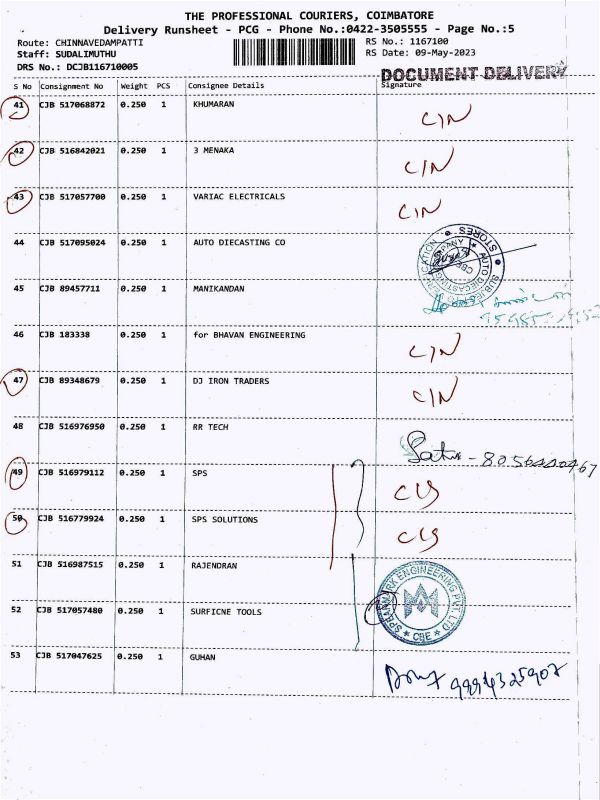 THE PROFESSIONAL COURIERS, COIMBATORE
Delivery Runsheet - PCG - Phone No.:0422-3505555 - Page No.:5
Route: CHINNAVEDAMPATTI RS No.: 1167100
Staff: SUDALIMUTHU RS Date: 09-May-2023
DRS No.: DCJB116710005 DOCUMENT DELIVERY
S No Consignment No Weight PCS Consignee Details Signature
41 CJB 517068872 0.250 1 KHUMARAN C/N
42 CJB 516842021 0.250 1 3 MENAKA C/N
43 CJB 517057700 0.250 1 VARIAC ELECTRICALS C/N
44 CJB 517095024 0.250 1 AUTO DIECASTING CO STORES AUTO DIECASTING
45 CJB 89457711 0.250 1 MANIKANDAN
46 CJB 183338 0.250 1 for BHAVAN ENGINEERING C/N
47 CJB 89348679 0.250 1 DJ IRON TRADERS C/N
48 CJB 516976950 0.250 1 RR TECH
49 CJB 516979112 0.250 1 SPS
50 CJB 516779924 0.250 1 SPS SOLUTIONS
51 CJB 516987515 0.250 1 RAJENDRAN
52 CJB 517057480 0.250 1 SURFICNE TOOLS ENGINEERING PVT. LTD CBE
53 CJB 517047625 0.250 1 GUHAN